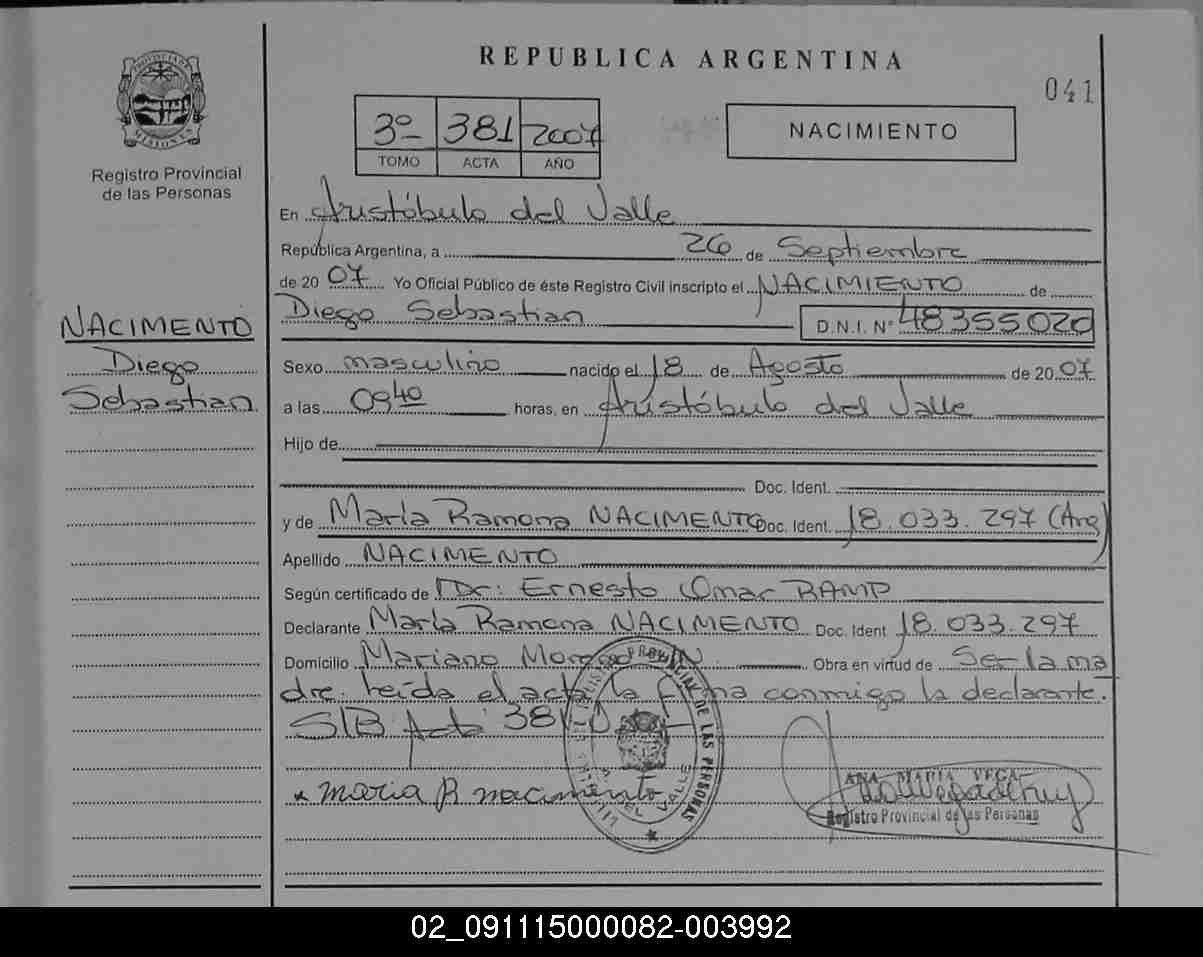 REPUBLICA ARGENTINA
041
PROVINCIA DE
MISIONES
Registro Provincial
de las Personas
3º 381 2007
TOMO ACTA AÑO
NACIMIENTO
En Aristóbulo del Valle
República Argentina, a 26 de Septiembre
de 20 07 Yo Oficial Público de éste Registro Civil inscripto el NACIMIENTO de
Diego Sebastian D.N.I. Nº 48355020
NACIMENTO
Diego
Sebastian
Sexo masculino nacido el 18 de Agosto de 20 07
a las 09 40 horas, en Aristóbulo del Valle
Hijo de
Doc. Ident.
y de María Ramona NACIMENTO Doc. Ident. 18.033.297 (Arg)
Apellido NACIMENTO
Según certificado de Dr: Ernesto Omar RAMP
Declarante María Ramona NACIMENTO Doc. Ident 18.033.297
Domicilio Mariano Moreno S/N. Obra en virtud de Ser la ma
dre. leída el acta la firma conmigo la declarante.
S/B Acta 381
maria R nacimento
PROVINCIAL DE LAS PERSONAS
DEL VALLE
ANA MARIA VEGA
Registro Provincial de las Personas
02_091115000082-003992